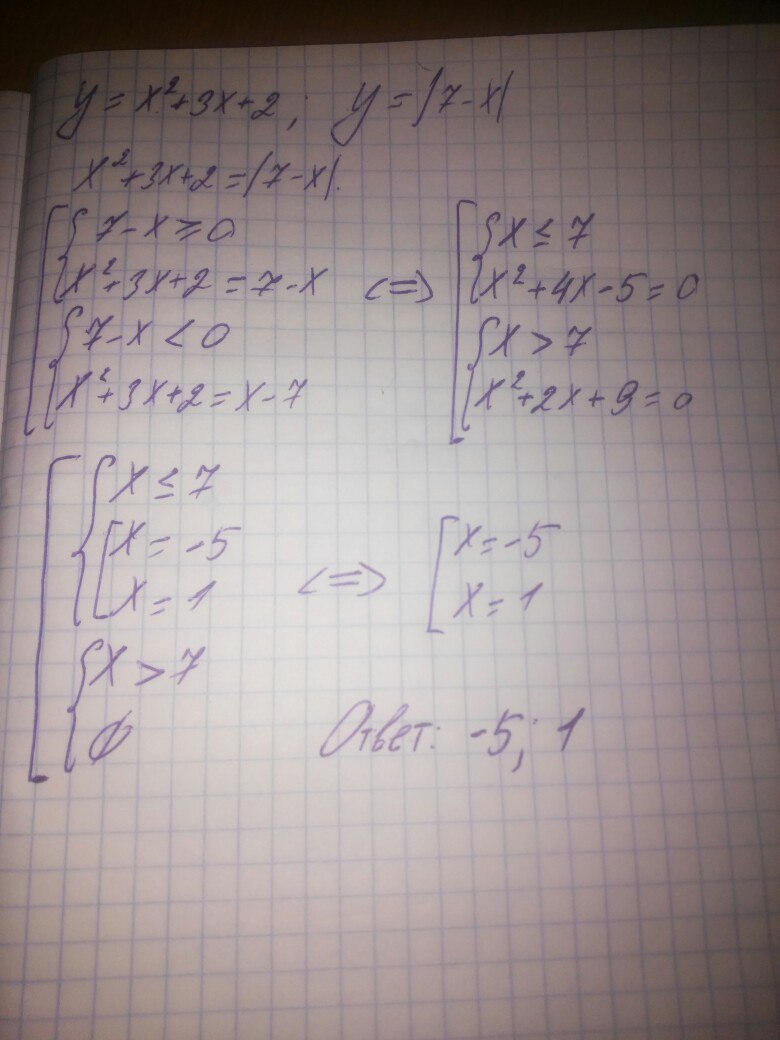 y = x²+3x+2; y = |7-x|
x²+3x+2 = |7-x|.
7-x ≥ 0
x²+3x+2 = 7-x
7-x < 0
x²+3x+2 = x-7
<=>
x ≤ 7
x²+4x-5=0
x > 7
x²+2x+9=0
x ≤ 7
x = -5
x = 1
x > 7
∅
<=>
x = -5
x = 1
Ответ: -5; 1